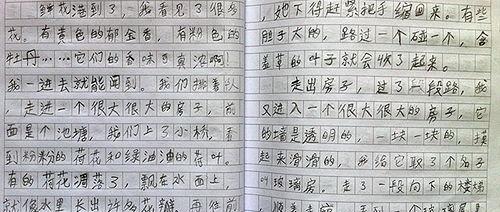 鲜花港到了，我看见了很多
花。有黄色的郁金香，有粉色的
牡丹……它们的香味可真浓啊！
我一进去就能闻到。我们排着队
，走进一个很大很大的房子，前
面是个池塘，我们上了小桥，看
到粉粉的荷花和绿油油的荷叶。
有的荷花凋落了，飘在水面上，
就像水里长出许多花瓣，再往前
，她下得赶紧把手缩回来。有些
胆子大的，路过一个碰一个，含
羞草的叶子就会收了起来。
走出房子，过了一段路，我
又进入一个很大很大的房子，它
的墙是透明的，一块一块的，摸
起来滑滑的，我给它取了个名子
叫玻璃房。走了一段向下的楼梯